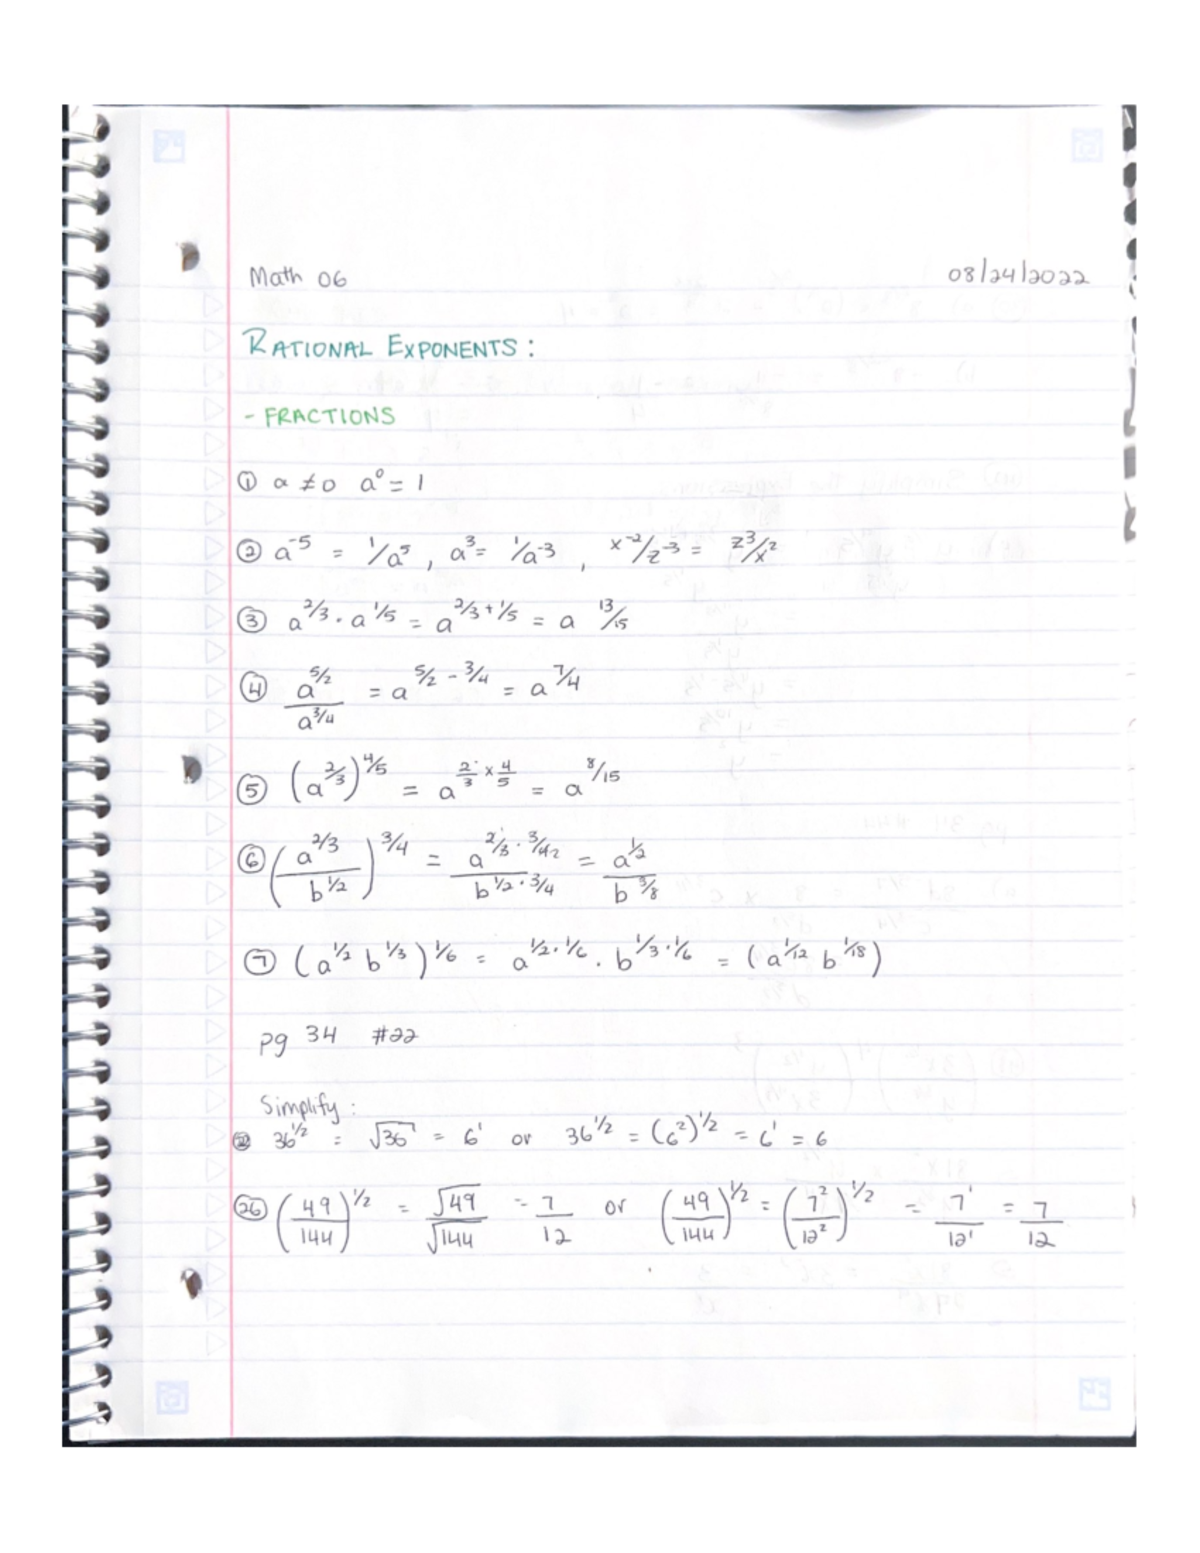 Math 06 08/24/2022
RATIONAL EXPONENTS:
- FRACTIONS
① a ≠ 0 a⁰ = 1
② a^-5 = 1/a^5, a^3 = 1/a^-3, x^-2/z^-3 = z^3/x^2
③ a^2/3 · a^1/5 = a^2/3+1/5 = a^13/15
④ a^5/2 / a^3/4 = a^5/2-3/4 = a^7/4
⑤ (a^2/3)^4/5 = a^2/3 x 4/5 = a^8/15
⑥ (a^2/3 / b^1/2)^3/4 = a^2/3·3/4 2 / b^1/2·3/4 = a^1/2 / b^3/8
⑦ (a^1/2 b^1/3)^1/6 = a^1/2·1/6 · b^1/3·1/6 = (a^1/12 b^1/18)
pg 34 #22
Simplify:
㉒ 36^1/2 = √36 = 6^1 or 36^1/2 = (6^2)^1/2 = 6^1 = 6
㉖ (49/144)^1/2 = √49/√144 = 7/12 or (49/144)^1/2 = (7^2/12^2)^1/2 = 7^1/12^1 = 7/12